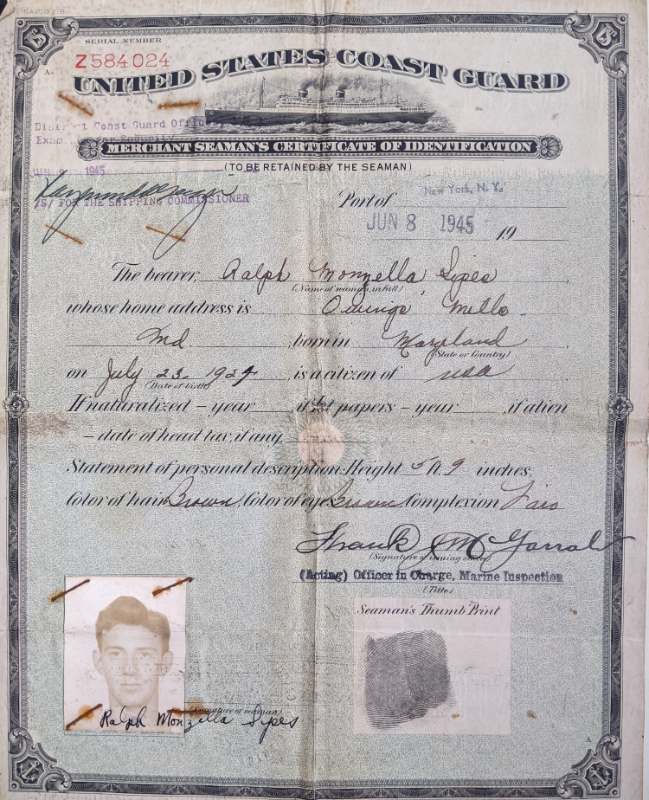 SERIAL NUMBER
Z584024
UNITED STATES COAST GUARD
District Coast Guard Offic
MERCHANT SEAMAN'S CERTIFICATE OF IDENTIFICATION
1945
(TO BE RETAINED BY THE SEAMAN)
/S/ FOR THE SHIPPING COMMISSIONER
Port of New York, N. Y.
JUN 8 1945 19
The bearer, Ralph Monzella Sipes
(Name of seaman in full)
whose home address is Owings Mills
Md , born in Maryland
(State or Country)
on July 23 1924 , is a citizen of USA
(Date of birth)
If naturalized – year if 1st papers – year , if alien
– date of head tax, if any,
Statement of personal description, Height 5 ft 9 inches,
Color of hair Brown, Color of eye Brown, Complexion Fair
(Signature of issuing officer)
(Acting) Officer in Charge, Marine Inspection
(Title)
Seaman's Thumb Print
(Signature of seaman)
Ralph Monzella Sipes